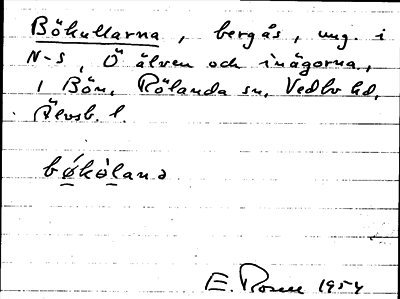 Bökullarna, bergås, ung. i
N-S, Ö älven och inägorna,
1 Bön, Rölanda sn, Vedbo hd,
Älvsb. l.
bǿkòlană
E. Rosell 1954